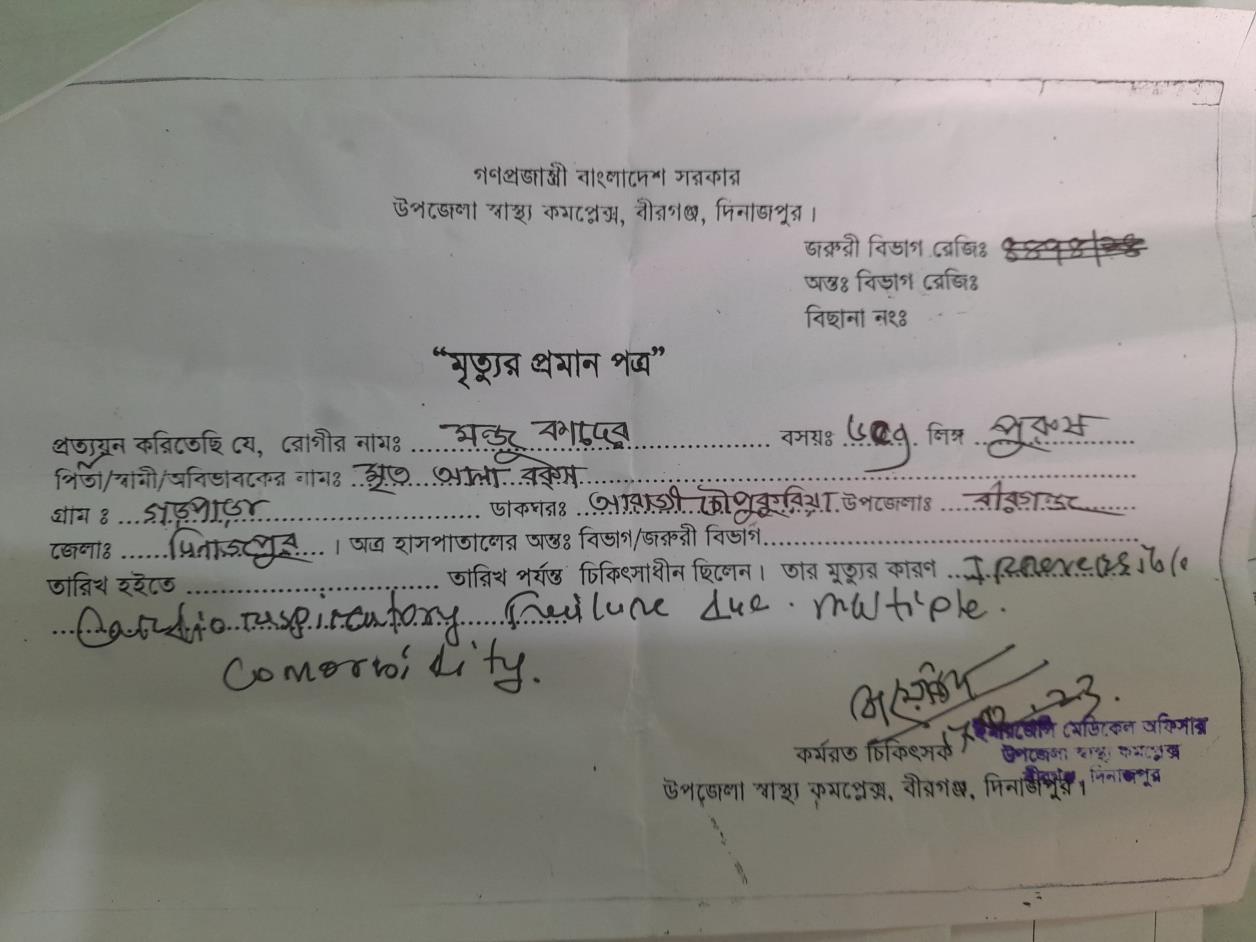 গণপ্রজাতন্ত্রী বাংলাদেশ সরকার
উপজেলা স্বাস্থ্য কমপ্লেক্স, বীরগঞ্জ, দিনাজপুর।
জরুরী বিভাগ রেজিঃ
অন্তঃ বিভাগ রেজিঃ
বিছানা নংঃ
“মৃত্যুর প্রমান পত্র”
প্রত্যয়ন করিতেছি যে, রোগীর নামঃ মন্জু বয়সঃ লিঙ্গ পুরুষ
পিতা/স্বামী/অবিভাবকের নামঃ মৃত আলা বকস
গ্রাম ঃ ডাকঘরঃ আরাজী চৌপুকুরিয়া উপজেলাঃ বীরগঞ্জ
জেলাঃ দিনাজপুর । অত্র হাসপাতালের অন্তঃ বিভাগ/জরুরী বিভাগ
তারিখ হইতে তারিখ পর্যন্ত চিকিৎসাধীন ছিলেন। তার মৃত্যুর কারণ Irreversible
Cardio respiratory failure due multiple
comorbidity.
কর্মরত চিকিৎসক
ইমারজেন্সি মেডিকেল অফিসার
উপজেলা স্বাস্থ্য কমপ্লেক্স
বীরগঞ্জ, দিনাজপুর
উপজেলা স্বাস্থ্য কমপ্লেক্স, বীরগঞ্জ, দিনাজপুর।